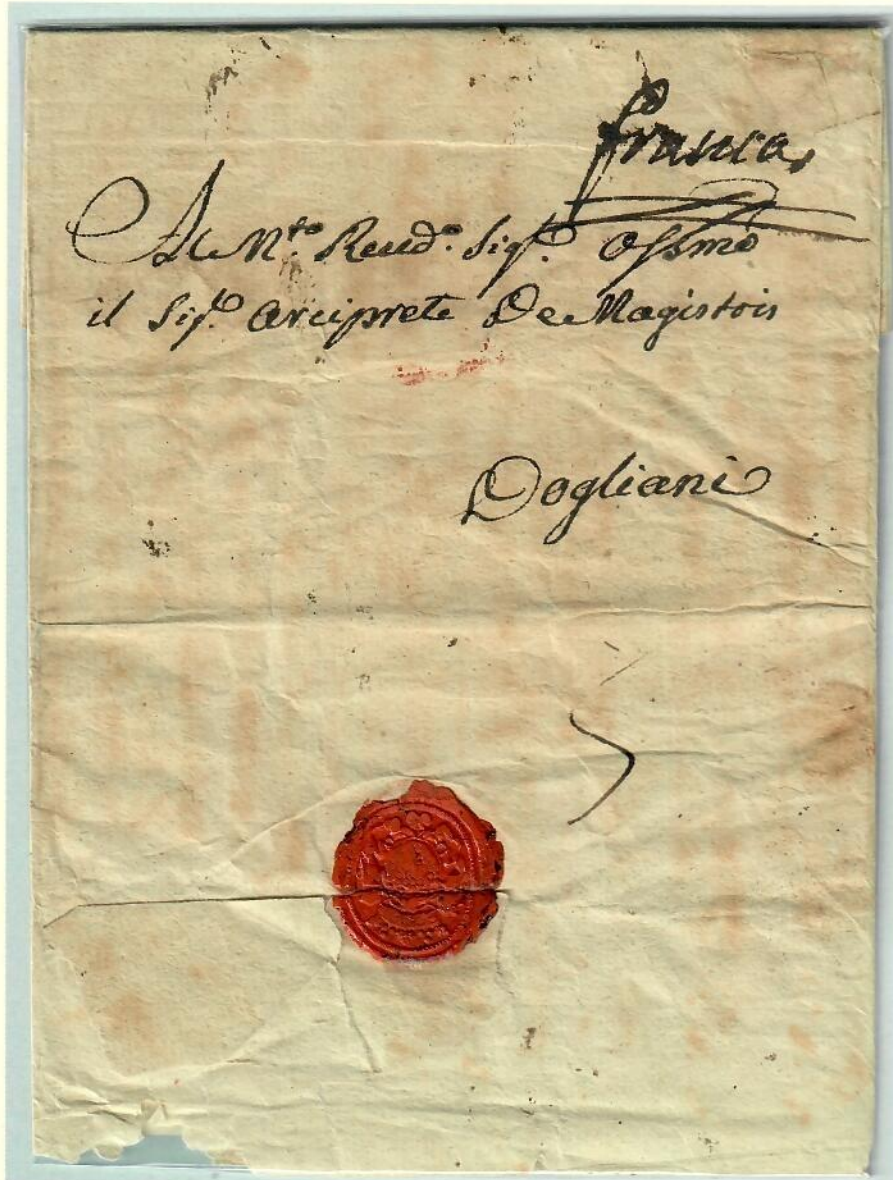 franca
Al M.to Reud.o Sig.r Ossmo
il Sig.r Arciprete De Magistris
Dogliani